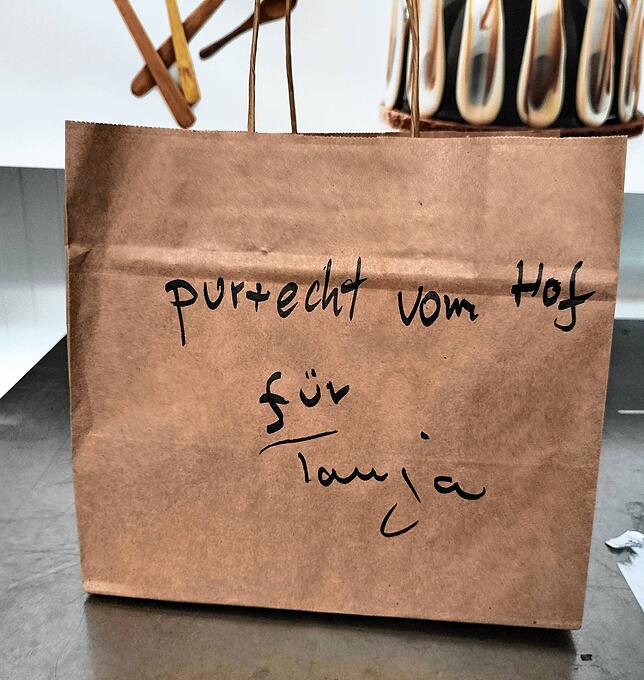 pur+echt vom Hof
für
Tanja